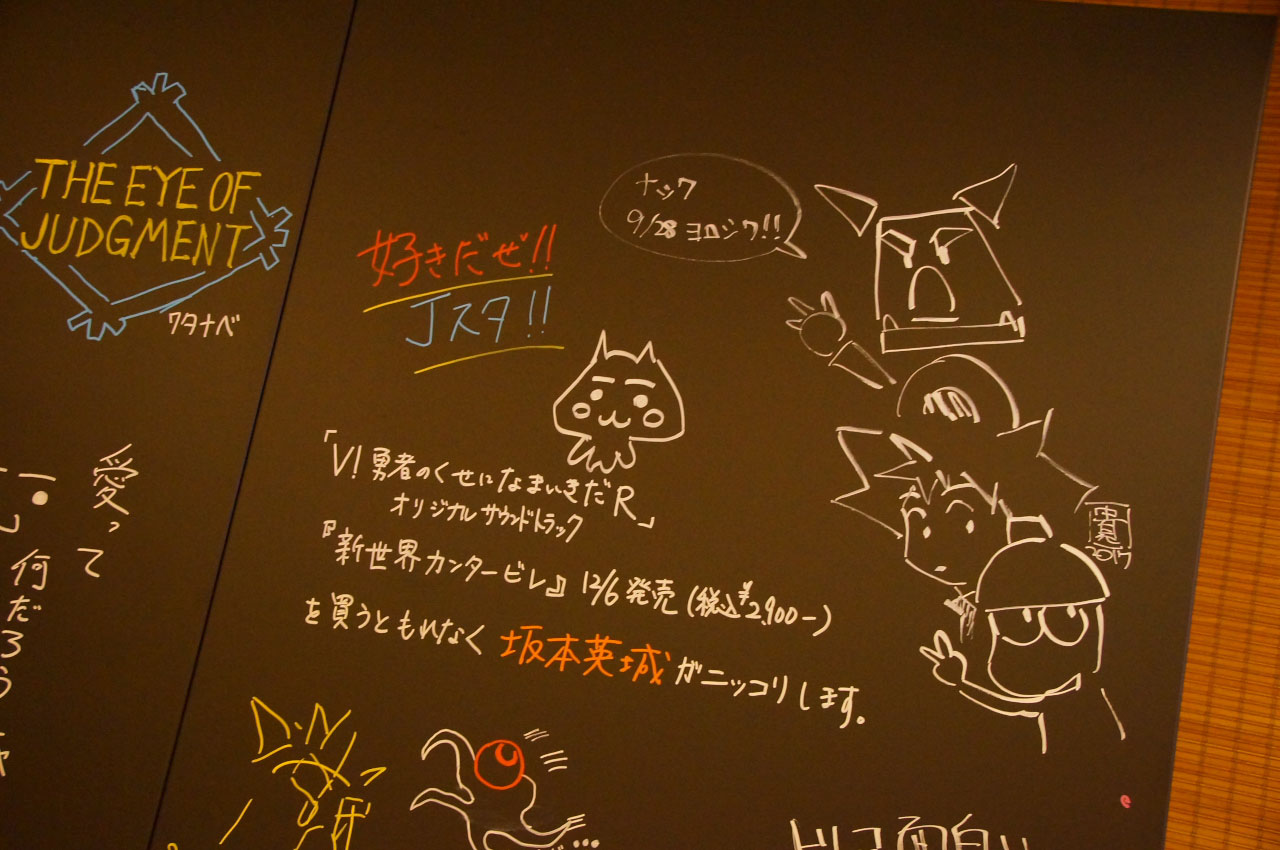 THE EYE OF
JUDGMENT
ワタナベ
ナック
9/28 ヨロシク!!
好きだぜ!!
Jスタ!!
「V!勇者のくせになまいきだR」
オリジナルサウンドトラック
『新世界カンタービレ』 12/6 発売 (税込¥2,900-)
を買うともれなく 坂本英城 がニッコリします。
愛って
何だろう
2017